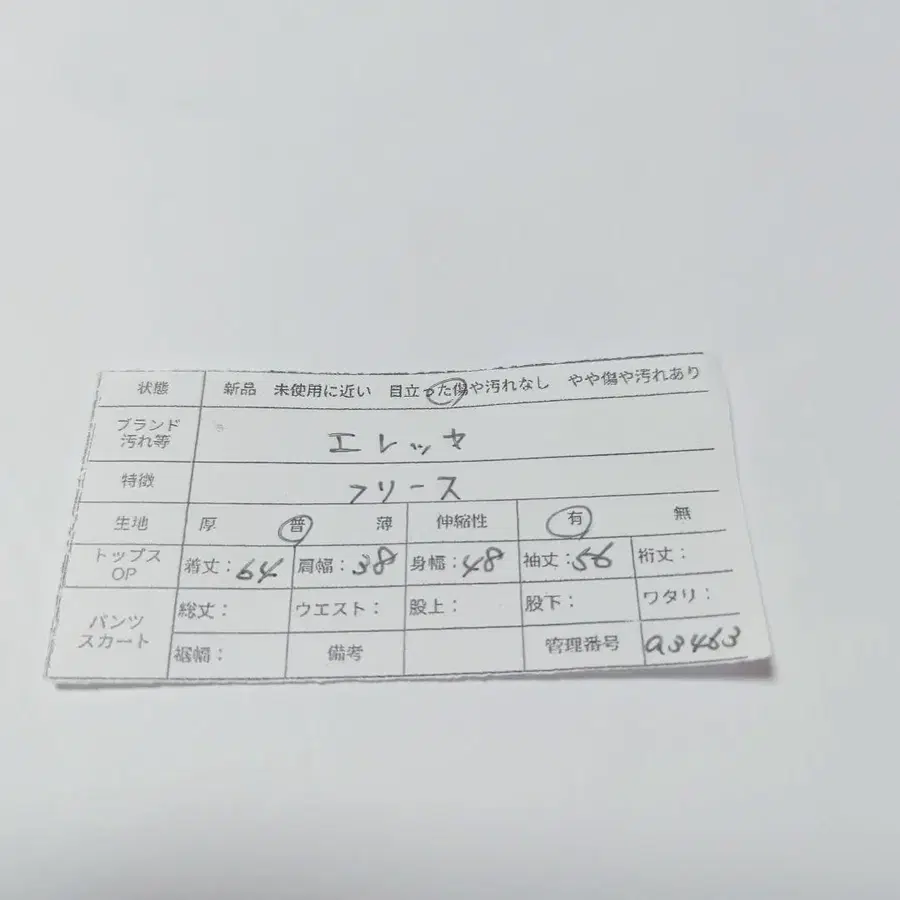 状態 新品 未使用に近い 目立った傷や汚れなし やや傷や汚れあり
ブランド
汚れ等 エレッセ
特徴 フリース
生地 厚 普 薄 伸縮性 有 無
トップス
OP 着丈:64 肩幅:38 身幅:48 袖丈:56 裄丈:
パンツ
スカート 総丈: ウエスト: 股上: 股下: ワタリ:
裾幅: 備考 管理番号 a3463